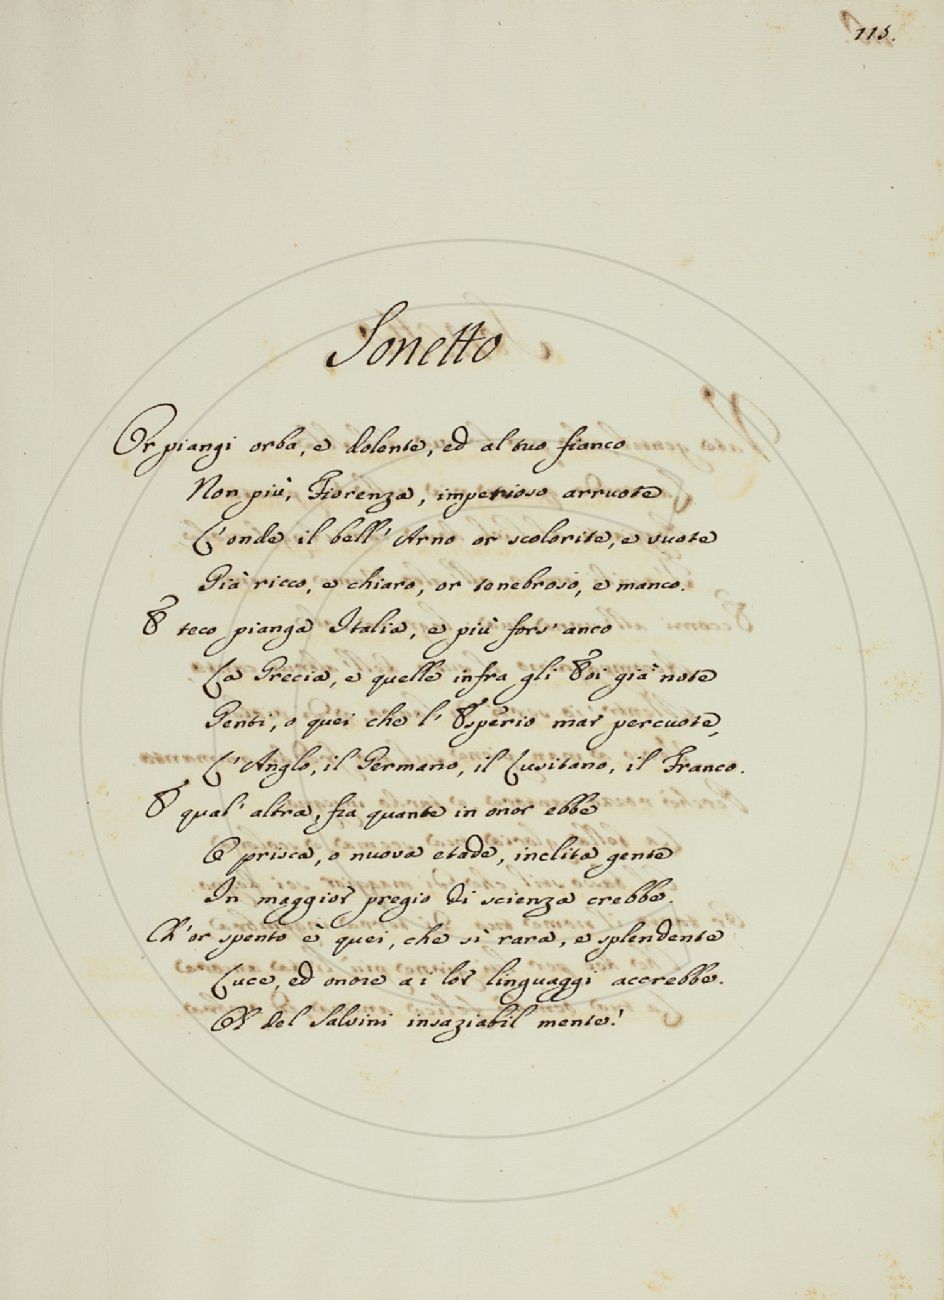 115.
Sonetto
Or piangi orba, e dolente, ed al tuo fianco
Non più, Fiorenza, imperioso arruote
L'onde il bell' Arno or scolorite, e vuote
Già ricco, e chiaro, or tenebroso, e manco.
E teco pianga Italia, e più fors' anco
La Grecia, e quelle infra gli Eoi già note
Genti, o quei che l' Esperio mar percuote,
L'Anglo, il Germano, il Lusitano, il Franco.
E qual' altra, fra quante in onor ebbe
O prisca, o nuova etade, inclita gente
In maggior pregio di scienza crebbe.
Ch'or spento è quei, che sì rara, e splendente
Luce, ed onore a i lor linguaggi accrebbe.
O del Salvini insaziabil mente!